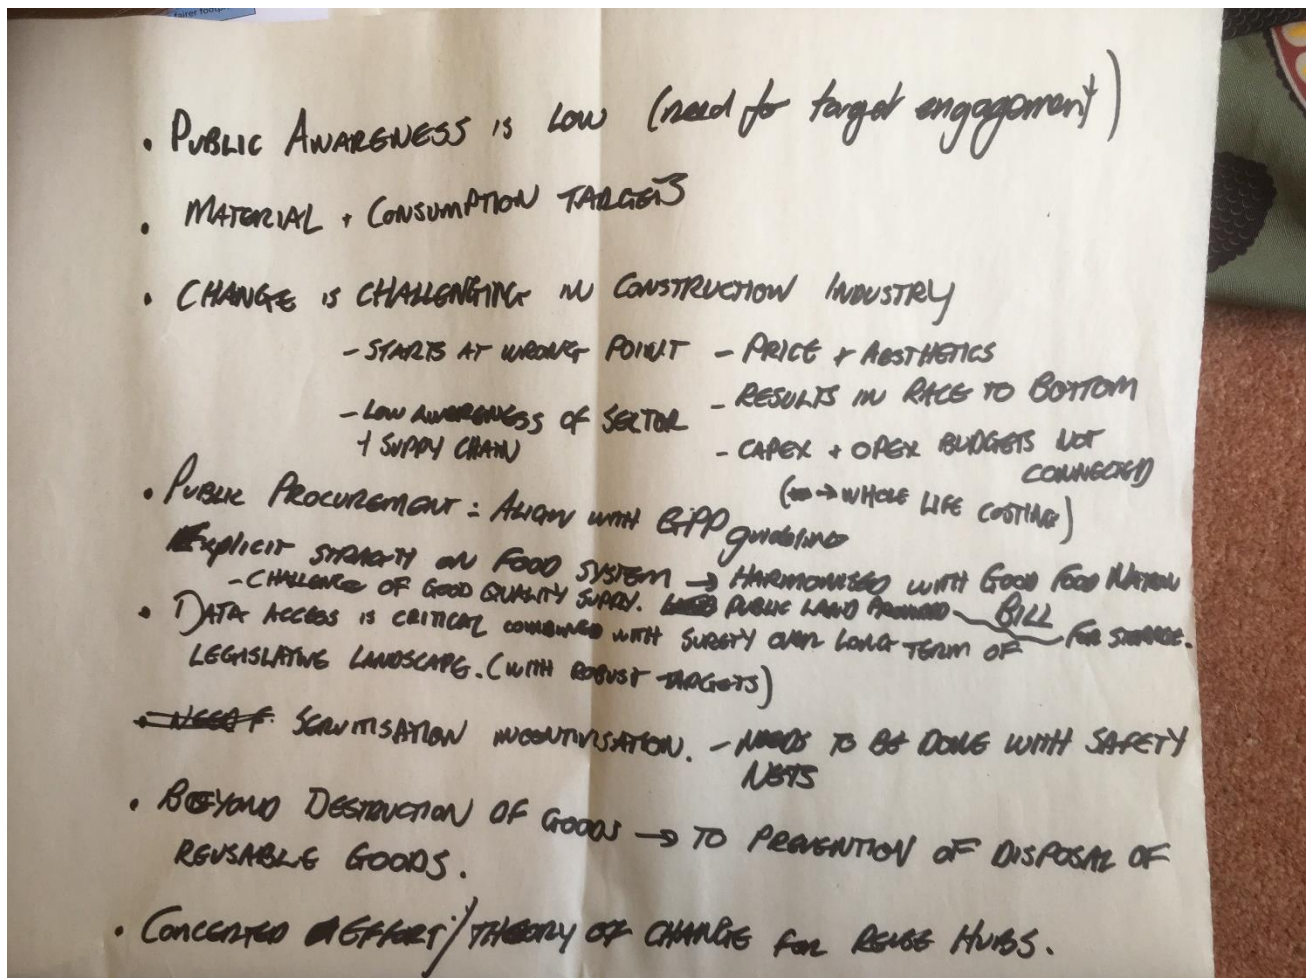 fairer footp
• PUBLIC AWARENESS IS LOW (need for target engagement)
• MATERIAL + CONSUMPTION TARGETS
• CHANGE IS CHALLENGING IN CONSTRUCTION INDUSTRY
- STARTS AT WRONG POINT - PRICE + AESTHETICS
- RESULTS IN RACE TO BOTTOM
- LOW AWARENESS OF SECTOR
+ SUPPLY CHAIN
- CAPEX + OPEX BUDGETS NOT
CONNECTED
(→ WHOLE LIFE COSTING)
• PUBLIC PROCUREMENT : ALIGN WITH GPP guideline
Explicit ON FOOD SYSTEM → HARMONISED WITH GOOD FOOD NATION
BILL
- CHALLENGE OF GOOD QUALITY SUPPLY. PUBLIC LAND FOR
• DATA ACCESS IS CRITICAL COMBINED WITH SURETY OVER LONG TERM OF
LEGISLATIVE LANDSCAPE. (WITH ROBUST TARGETS)
• SERVITISATION INCENTIVISATION. - NEEDS TO BE DONE WITH SAFETY
NETS
• BEYOND DESTRUCTION OF GOODS → TO PREVENTION OF DISPOSAL OF
REUSABLE GOODS.
• CONCERTED EFFORT / THEORY OF CHANGE FOR REUSE HUBS.